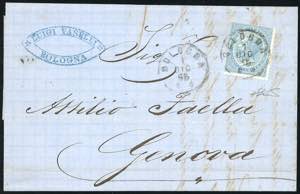 LUIGI VASELLI
BOLOGNA
Sig.
BOLOGNA
DIC
BOLOGNA
DIC
Attilio Faella
Genova